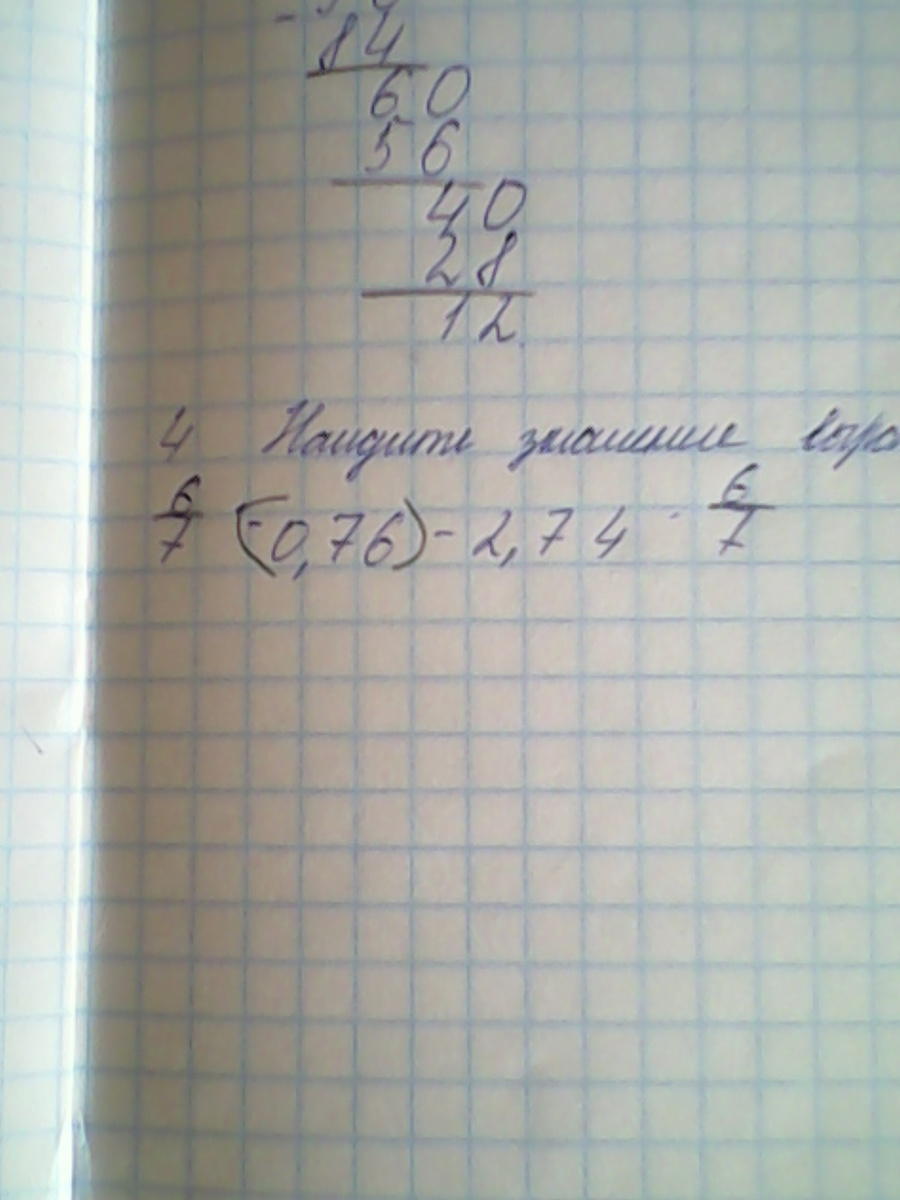 - 84
60
56
40
28
12
4 Найдите значение выра
6/7 (-0,76) - 2,74 · 6/7